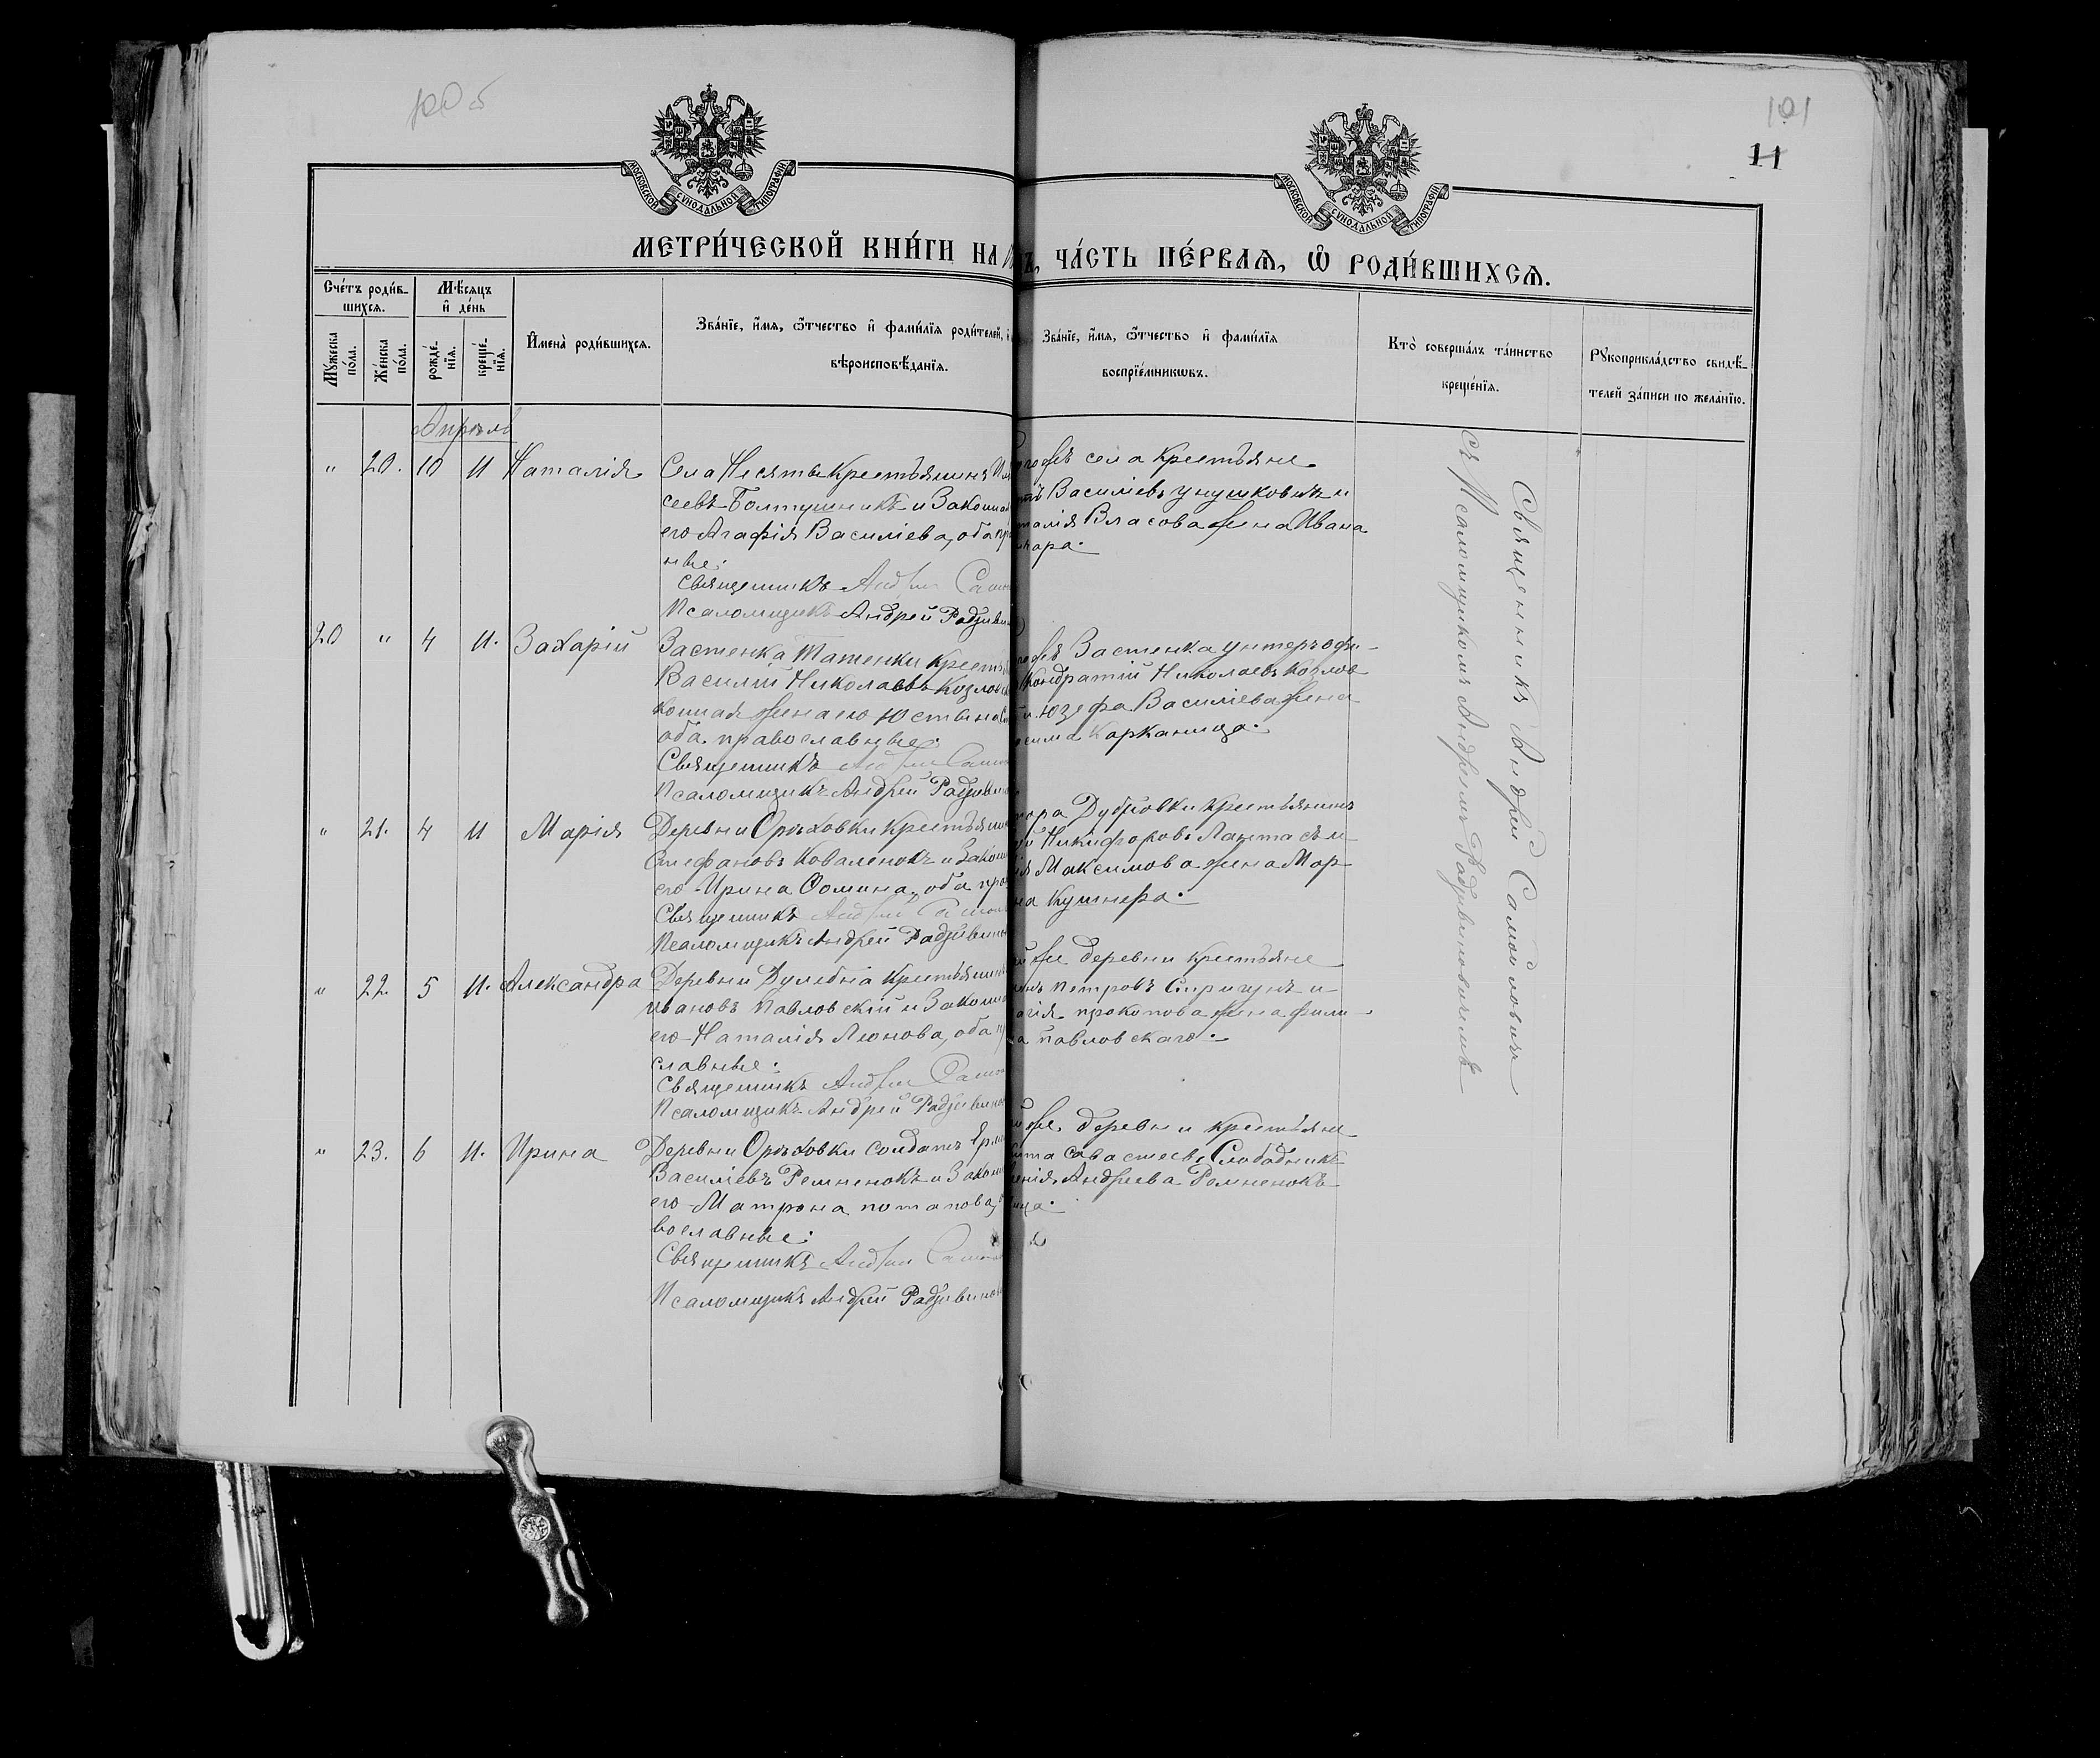 100 об
101
11
МОСКОВСКОЙ СУНОДАЛЬНОЙ ТИПОГРАФІИ
МОСКОВСКОЙ СУНОДАЛЬНОЙ ТИПОГРАФІИ
МЕТРИ́ЧЕСКОЙ КНИ́ГИ НА
, ЧА́СТЬ ПЕ́РВАѦ, Ѡ҆ РОДИ́ВШИХСѦ.
Сче́тъ роди́в-
шихсѧ.
Мꙋ́жеска
по́ла.
Же́нска
по́ла.
Мѣ́сѧцъ
и҆ де́нь
рожде́-
нїѧ.
креще́-
нїѧ.
И҆мена̀ роди́вшихсѧ.
Зва́нїе, и҆́мѧ, ѻ҆́тчество и҆ фами́лїѧ роди́телей,
вѣроисповѣ́данїѧ.
Зва́нїе, и҆́мѧ, ѻ҆́тчество и҆ фами́лїѧ
воспрїе́мникѡвъ.
Кто̀ соверша́лъ та́инство
креще́нїѧ.
Рꙋкоприкла́дство свидѣ́-
телей за́писи по жела́нїю.
Апрѣль
" 20. 10 11 Наталія
Села Несяты крестьянинъ
сеевъ Болтушникъ и закон
его Агафія Василіева, оба пр
ные.
Священникъ Андрей Само
Псаломщикъ Андрей Радзиви
гожъ села крестьяне
Василіевъ Унушковичъ и
талія Власова жена Ивана
20 " 4 11. Захарій
Застенка Татенки крест
Василій Николаевъ Козлов
конная жена его Юстина
оба православные.
Священникъ Андрей Само
Псаломщикъ Андрей Радзиви
Застенка унтеръ офи-
Кондратій Николаевъ Козлов
Юзефа Василіева жена
Карканица.
" 21. 4 11 Марія
Деревни Орѣховки крестьянин
Стефановъ Коваленокъ и закон
его Ирина Фомина, оба пра
Священникъ Андрей Само
Псаломщикъ Андрей Радзивино
Дубровки крестьянинъ
Никифоровъ Лапта
Максимова жена Мар
на Кушнера.
" 22. 5 11. Александра
Деревни Дулебна крестьянин
Ивановъ Павловскій и закон
его Наталія Леонова, оба п
славные.
Священникъ Андрей Само
Псаломщикъ Андрей Радзивино
же деревни крестьяне
Петровъ Спригунъ и
прокопова жена Фили-
а Павловскаго.
" 23. 6 11. Ирина
Деревни Орѣховки солдатъ
Василіевъ Ремненокъ и закон
его Матрона Потапова,
вославные.
Священникъ Андрей Само
Псаломщикъ Андрей Радзивино
же деревни крестьяне
Савастеевъ Слободникъ
Андреева Ремненокъ
ица.
Священникъ Андрей Самойловичъ
съ Псаломщикомъ Андреемъ Радзивиновичемъ